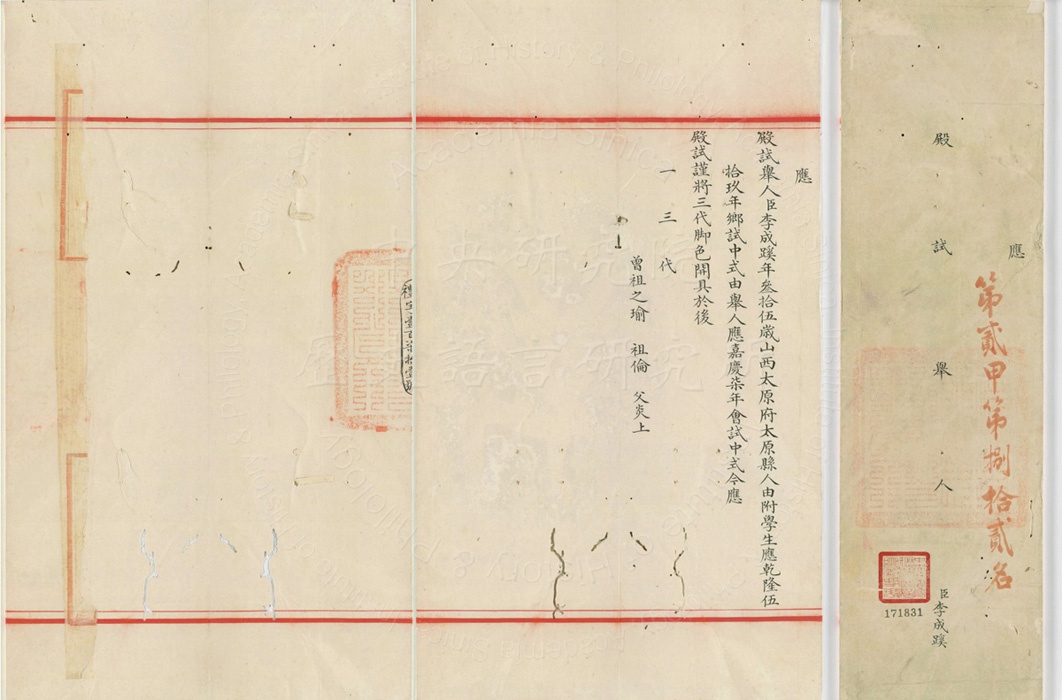 應
殿試舉人
第貳甲第捌拾貳名
臣李成蹊
171831
應
殿試舉人臣李成蹊年叁拾伍歲山西太原府太原縣人由附學生應乾隆伍
拾玖年鄉試中式由舉人應嘉慶柒年會試中式今應
殿試謹將三代脚色開具於後
一三代
曾祖之瑜 祖倫 父炎上